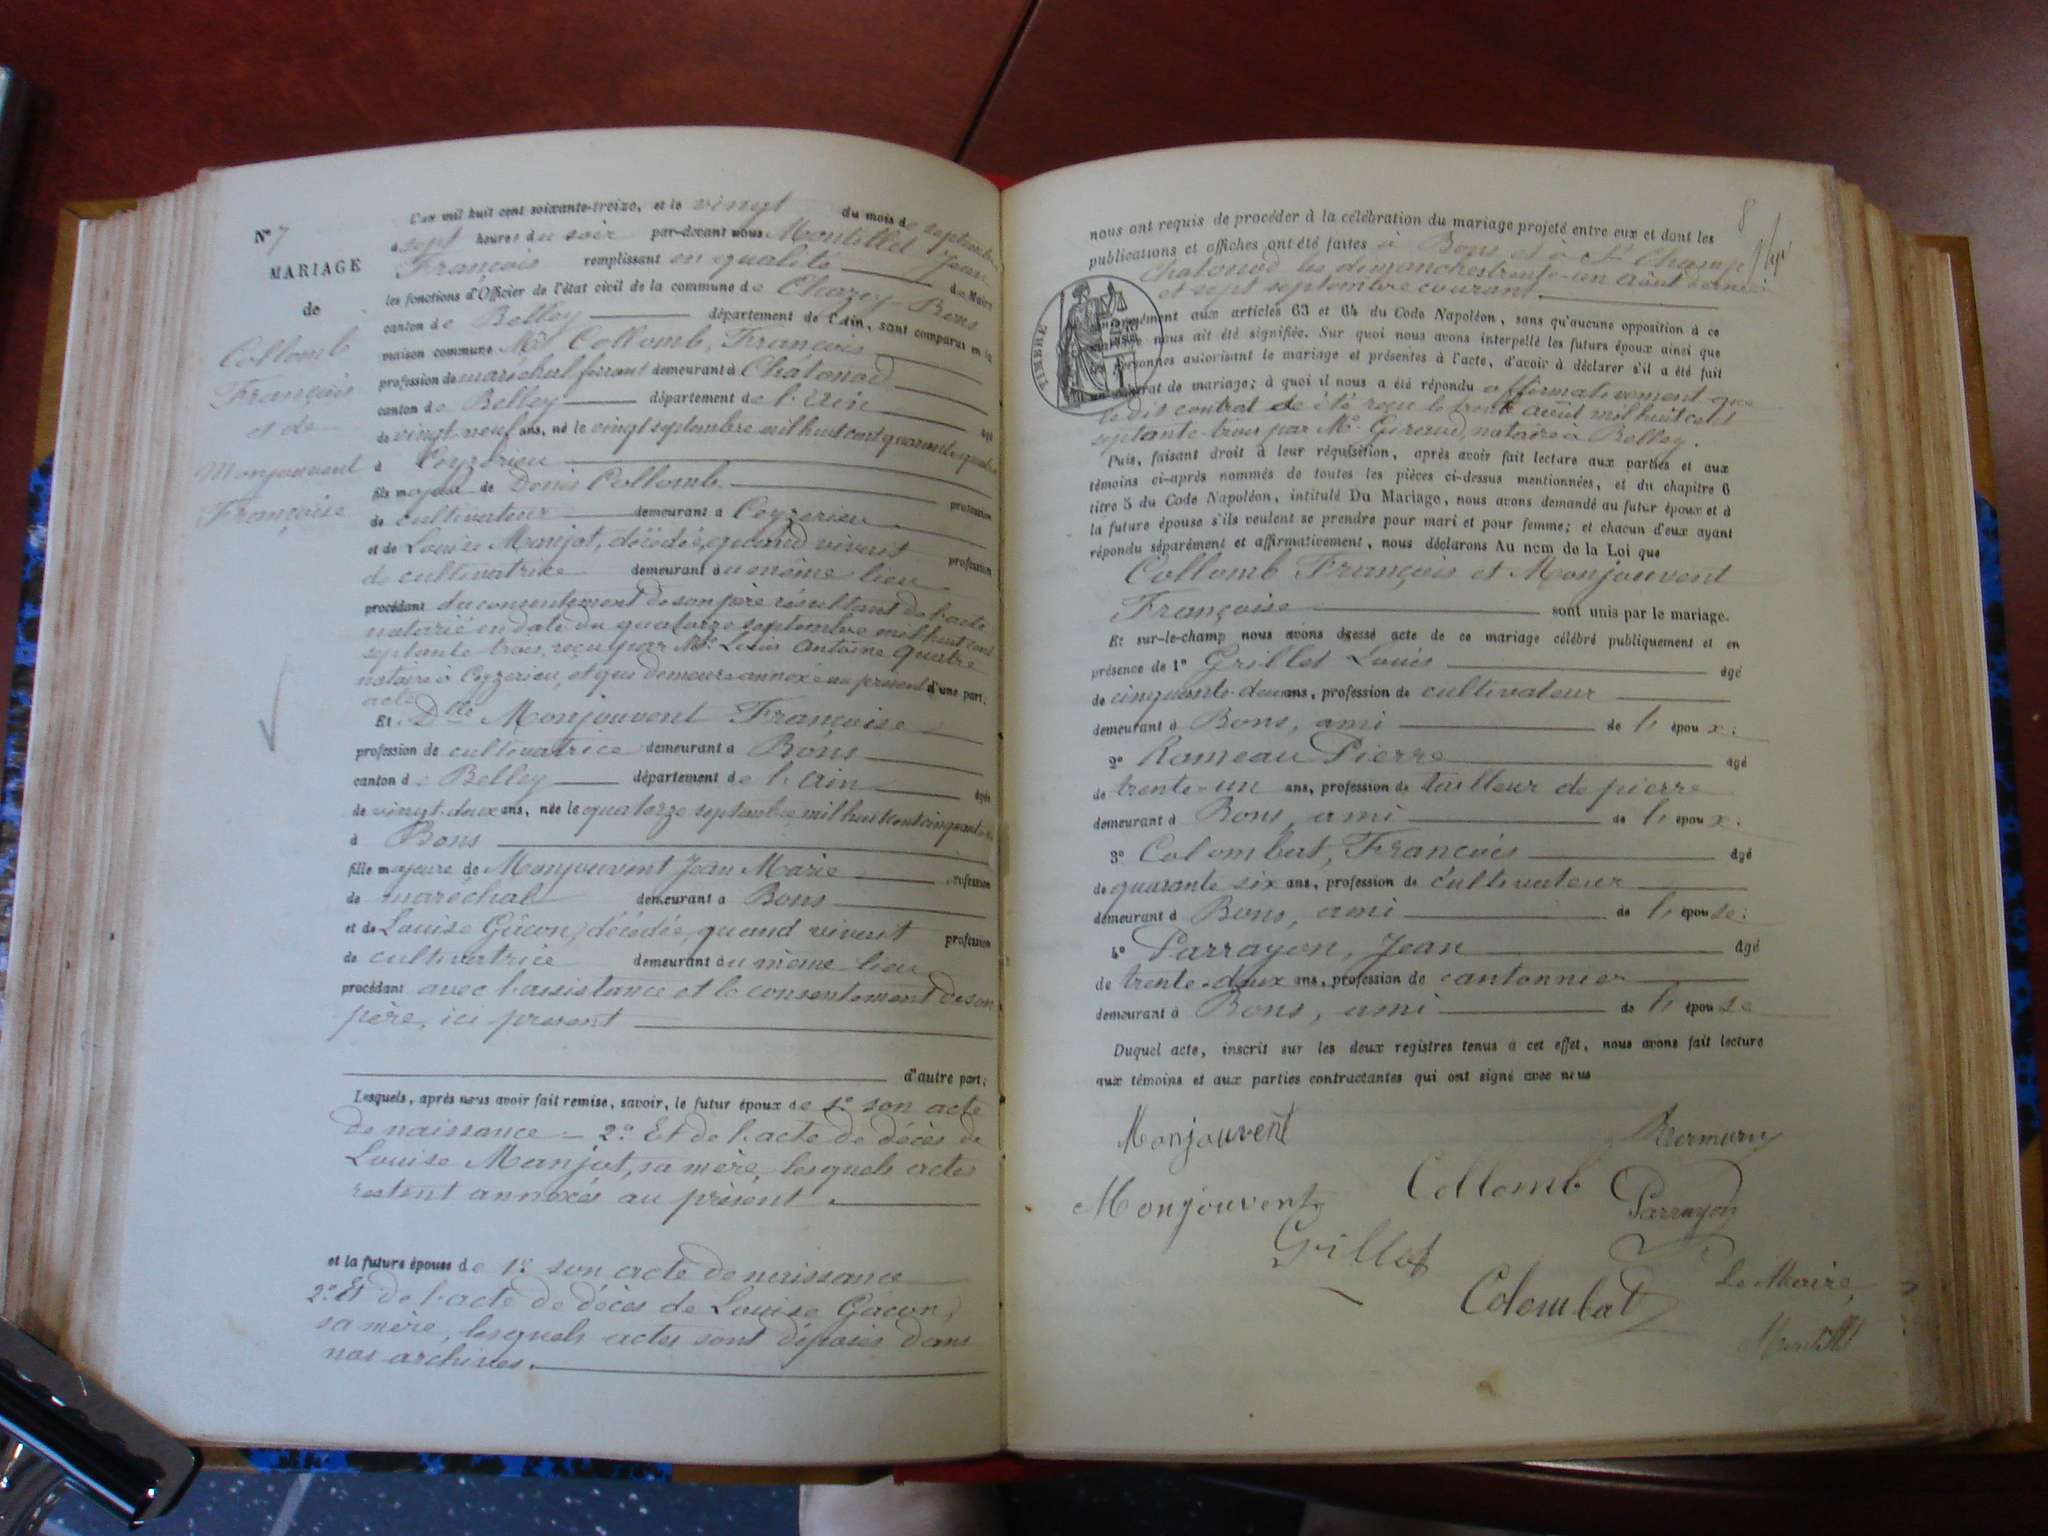 N° 7
MARIAGE
de
Collomb
François
et de
Monjouvent
Françoise
L'an mil huit cent soixante-treize, et le vingt du mois de septembre
à sept heures du soir par-devant nous Montillet Jean
François remplissant en qualité de Maire
les fonctions d'Officier de l'état civil de la commune de Chazey-Bons
canton de Belley département de l'Ain, sont comparus en la
maison commune Mr Collomb, François
profession de maréchal ferrant demeurant à Châtonod
canton de Belley département de l'Ain
âgé
de vingt neuf ans, né le vingt septembre mil huit cent quarante quatre
à Ceyzerieu
fils majeur de Denis Collomb
profession
de cultivateur demeurant à Ceyzerieu
et de Louise Manjot, décédée, quand vivait
profession
de cultivatrice demeurant au même lieu
procédant du consentement de son père résultant de l'acte
notarié en date du quatorze septembre mil huit cent
septante trois, reçu par Me Antoine
notaire à Ceyzerieu, et qui demeure annexé au présent d'une part;
acte
Et Dlle Monjouvent Françoise
profession de cultivatrice demeurant à Bons
canton de Belley département de l'Ain
âgée
de vingt-deux ans, née le quatorze septembre mil huit cent cinquante
à Bons
fille majeure de Monjouvent Jean Marie profession
de maréchal demeurant à Bons
et de Louise Gâcon, décédée, quand vivait profession
de cultivatrice demeurant au même lieu
procédant avec l'assistance et le consentement de son
père, ici présent
d'autre part;
Lesquels, après nous avoir fait remise, savoir, le futur époux de 1° son acte
de naissance – 2° Et de l'acte de décès de
Louise Manjot, sa mère, lesquels actes
restent annexés au présent.
et la future épouse de 1° son acte de naissance
2° Et de l'acte de décès de Louise Gâcon,
sa mère, lesquels actes sont déposés dans
nos archives.
8
nous ont requis de procéder à la célébration du mariage projeté entre eux et dont les
publications et affiches ont été faites à Bons et à St Champ
Chatonod les dimanches trente-un août dernier
et sept septembre courant.
TIMBRE
conformément aux articles 63 et 64 du Code Napoléon, sans qu'aucune opposition à ce
mariage nous ait été signifiée. Sur quoi nous avons interpellé les futurs époux ainsi que
les personnes autorisant le mariage et présentes à l'acte, d'avoir à déclarer s'il a été fait
contrat de mariage; à quoi il nous a été répondu affirmativement que
le dit contrat a été reçu le trente août mil huit cent
septante-trois par Me Giraud, notaire à Belley.
Puis, faisant droit à leur réquisition, après avoir fait lecture aux parties et aux
témoins ci-après nommés de toutes les pièces ci-dessus mentionnées, et du chapitre 6
titre 5 du Code Napoléon, intitulé Du Mariage, nous avons demandé au futur époux et à
la future épouse s'ils veulent se prendre pour mari et pour femme; et chacun d'eux ayant
répondu séparément et affirmativement, nous déclarons Au nom de la Loi que
Collomb François et Monjouvent
Françoise sont unis par le mariage.
Et sur-le-champ nous avons dressé acte de ce mariage célébré publiquement et en
présence de 1° Grillet Louis âgé
de cinquante-deux ans, profession de cultivateur
demeurant à Bons, ami de l'époux:
2° Rameau Pierre âgé
de trente-un ans, profession de tailleur de pierre
demeurant à Bons, ami de l'époux:
3° Colombat, François âgé
de quarante six ans, profession de cultivateur
demeurant à Bons, ami de l'épouse:
4° Parrayon, Jean âgé
de trente-deux ans, profession de cantonnier
demeurant à Bons, ami de l'épouse
Duquel acte, inscrit sur les deux registres tenus à cet effet, nous avons fait lecture
aux témoins et aux parties contractantes qui ont signé avec nous
Monjouvent
Monjouvent Collomb Parrayon
Grillet
Colombat Le Maire,
Montillet